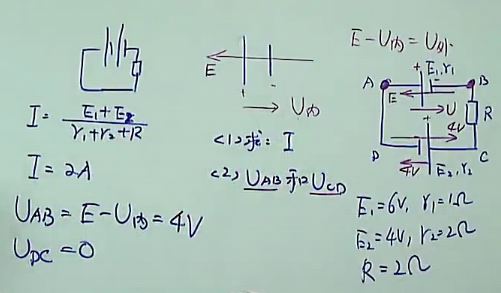 I = E₁+E₂ / r₁+r₂+R
I = 2A
U_AB = E-U内 = 4V
U_DC = 0
E
+ -
U内
<1>求: I
<2> U_AB和U_CD
E-U内=U外
+ E₁,r₁ -
A
B
E
U
R
+
4V
D
C
4V
E₂,r₂
E₁=6V, r₁=1Ω
E₂=4V, r₂=2Ω
R=2Ω